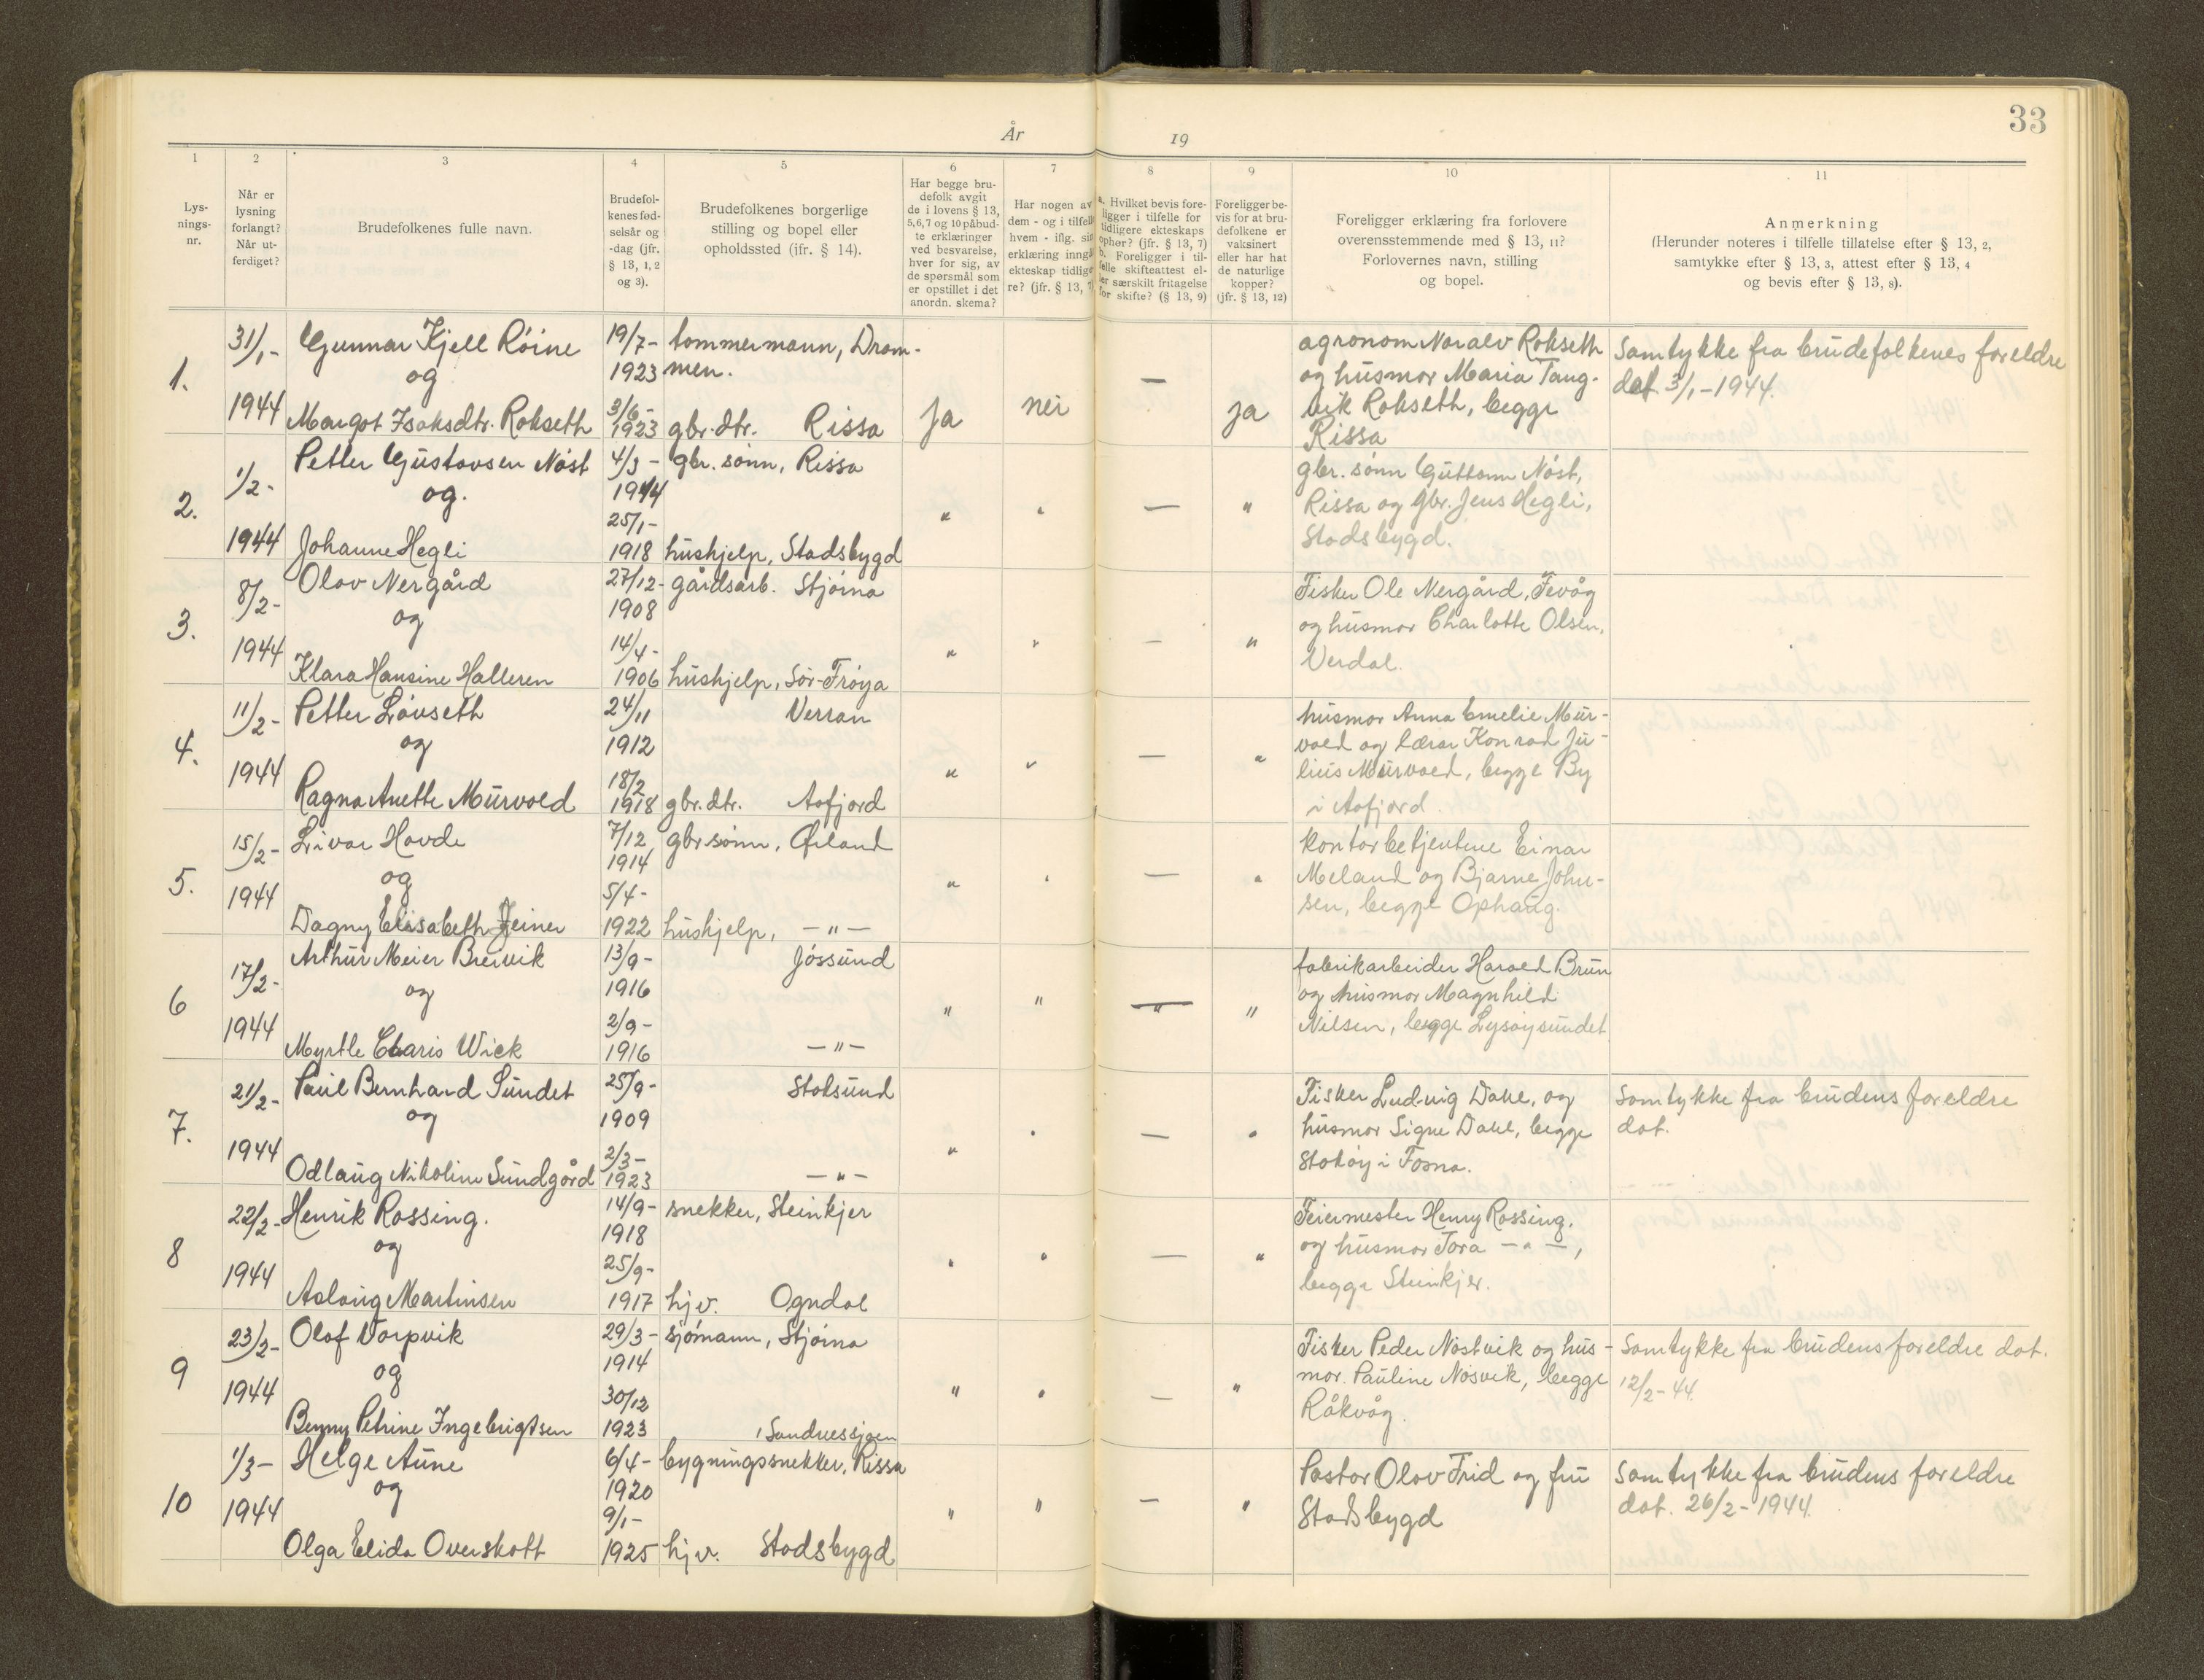 33
År 19
1 2 3 4 5 6 7 8 9 10 11
Lys-
nings-
nr.
Når er
lysning
forlangt?
Når ut-
ferdiget?
Brudefolkenes fulle navn.
Brudefol-
kenes fød-
selsår og
-dag (jfr.
§ 13, 1, 2
og 3).
Brudefolkenes borgerlige
stilling og bopel eller
opholdssted (ifr. § 14).
Har begge bru-
defolk avgit
de i lovens § 13,
5,6,7 og 10 påbud-
te erklæringer
ved besvarelse,
hver for sig, av
de spørsmål som
er opstillet i det
anordn. skema?
Har nogen av
dem - og i tilfelle
hvem - iflg. sin
erklæring inngå
ekteskap tidlige
re? (jfr. § 13, 7)
a. Hvilket bevis fore-
ligger i tilfelle for
tidligere ekteskaps
ophør? (jfr. § 13, 7)
b. Foreligger i til-
felle skifteattest el-
ler særskilt fritagelse
for skifte? (§ 13, 9)
Foreligger be-
vis for at bru-
defolkene er
vaksinert
eller har hat
de naturlige
kopper?
(jfr. § 13, 12)
Foreligger erklæring fra forlovere
overensstemmende med § 13, 11?
Forlovernes navn, stilling
og bopel.
Anmerkning
(Herunder noteres i tilfelle tillatelse efter § 13, 2,
samtykke efter § 13, 3, attest efter § 13, 4
og bevis efter § 13, 8).
1.
31/1-
1944
Gunnar Kjell Róine
og
Margot Isaksdtr. Rokseth
19/7-
1923
3/6-
1923
tømmermann, Dram-
men.
gbr. dtr. Rissa
ja
nei
—
ja
agronom Noralv Rokseth
og husmor Maria Tang-
vik Rokseth, begge
Rissa
Samtykke fra brudefolkenes foreldre
dat. 3/1-1944.
2.
1/2-
1944
Petter Gustavsen Nóst
og.
Johanne Hegli
4/3-
1914
25/1-
1918
gbr. sónn, Rissa
hushjelp, Stadsbygd
" " — "
gbr. sónn Guttorm Nóst,
Rissa og gbr. Jens Hegli,
Stadsbygd.
3.
8/2-
1944
Olav Nergård
og
Klara Hansine Halleren
27/12-
1908
14/4-
1906
gårdsarb. Stjórna
hushjelp, Sór-Fróya
" " — "
Fisker Ole Nergård, Fevåg
og husmor Charlotte Olsen,
Verdal.
4.
11/2-
1944
Petter Lóvseth
og
Ragna Anette Murvold
24/11
1912
18/2
1918
Verran
gbr. dtr. Aafjord
" " — "
husmor Anna Emelie Mur-
vold og lærer Konrad Ju-
lius Murvold, begge By
i Aafjord.
5.
15/2-
1944
Livar Hovde
og
Dagny Elisabeth Jeiner
7/12
1914
5/4-
1922
gbr. sónn, Ørland
hushjelp, —"—
" " — "
Kontorbetjentene Einar
Meland og Bjarne John-
sen, begge Ophaug.
6
17/2-
1944
Arthur Meier Brevik
og
Myrtle Claris Wick
13/9-
1916
2/9-
1916
Jóssund
—"—
" " — "
fabrikarbeider Harald Brun
og husmor Magnhild
Nilsen, begge Lysóysundet
7.
21/2-
1944
Paul Bernhard Sundet
og
Odlaug Nikoline Sundgård
25/9-
1909
2/3-
1923
Stoksund
—"—
" " — "
Fisker Ludvig Dahl, og
husmor Signe Dahl, begge
Stokóy i Fosna.
Samtykke fra brudens foreldre
dat.
8
22/2-
1944
Henrik Rossing.
og
Aslaug Martinsen
14/9-
1918
25/9-
1917
snekker, Steinkjer
hj.v. Ogndal
" " — "
Feiermester Henry Rossing,
og husmor Tora —"—,
begge Steinkjer.
9
23/2-
1944
Olaf Vorpvik
og
Benny Petrine Ingebrigtsen
29/3-
1914
30/12
1923
sjómann, Stjórna
, Sandnessjøen
" " — "
Fisker Peder Nóstvik og hus-
mor. Pauline Nósvik, begge
Råkvåg.
Samtykke fra brudens foreldre dat.
12/2-44.
10
1/3-
1944
Helge Aune
og
Olga Elida Overskott
6/4-
1920
9/1-
1925
bygningssnekker, Rissa
hj.v. Stadsbygd
" " — "
Pastor Olav Frid og fru
Stadsbygd
Samtykke fra brudens foreldre
dat. 26/2-1944.